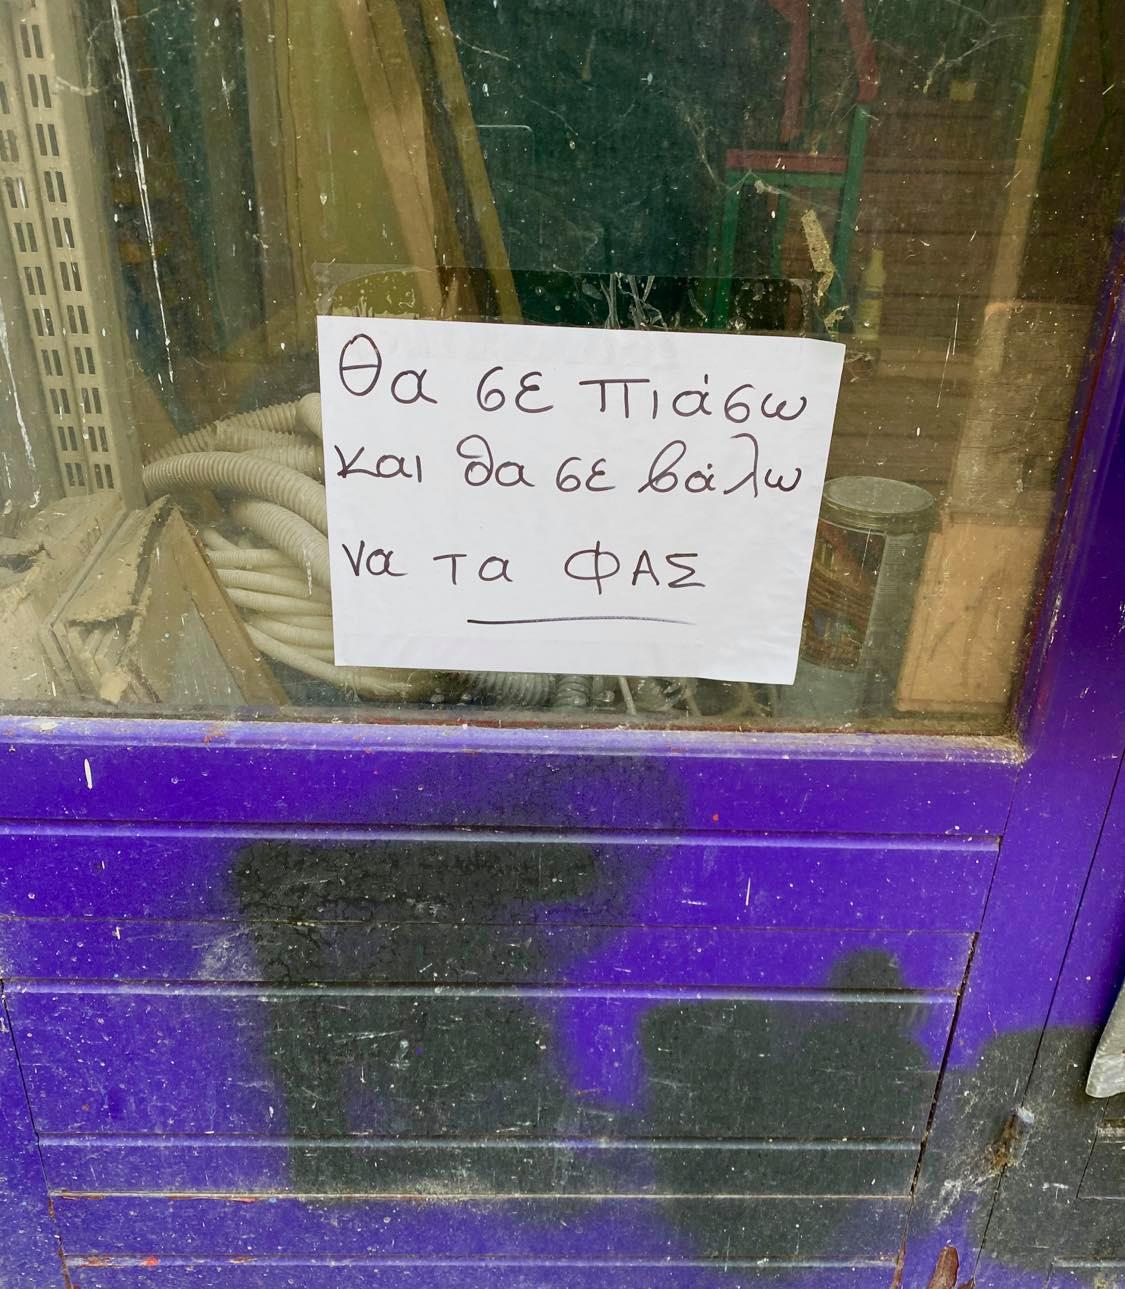 Θα σε πιάσω
και θα σε βάλω
να τα ΦΑΣ